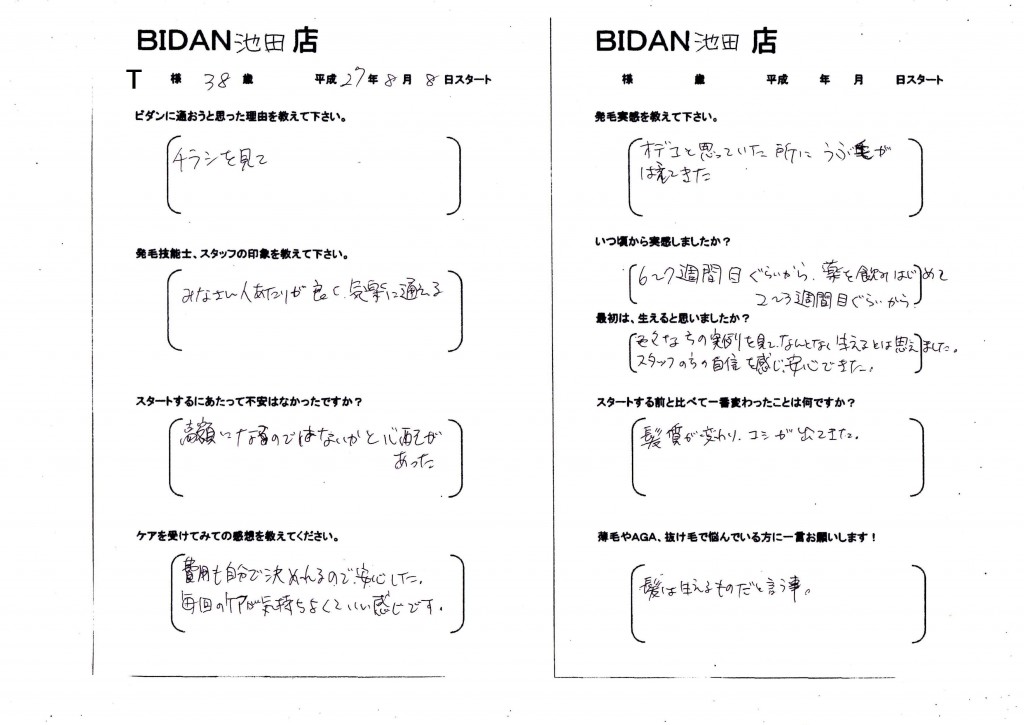 BIDAN池田店
T 様 38 歳 平成27年8月8日スタート
ビダンに通おうと思った理由を教えて下さい。
チラシを見て
発毛技能士、スタッフの印象を教えて下さい。
みなさん人あたりが良く、気楽に通える
スタートするにあたって不安はなかったですか？
高額になるのではないかと心配が
あった
ケアを受けてみての感想を教えてください。
費用も自分で決めれるので、安心した。
毎回のケアが気持ちよくていい感じです。
BIDAN池田店
様 歳 平成 年 月 日スタート
発毛実感を教えて下さい。
オデコと思っていた所に うぶ毛が
はえてきた
いつ頃から実感しましたか？
6〜7週間目ぐらいから、薬を飲みはじめて
2〜3週間目ぐらいから
最初は、生えると思いましたか？
色々な方の実例を見て、なんとなく生えるとは思えました。
スタッフの方の自信を感じ、安心できた。
スタートする前と比べて一番変わったことは何ですか？
髪質が変わり、コシが出てきた。
薄毛やAGA、抜け毛で悩んでいる方に一言お願いします！
髪は生えるものだと言う事。